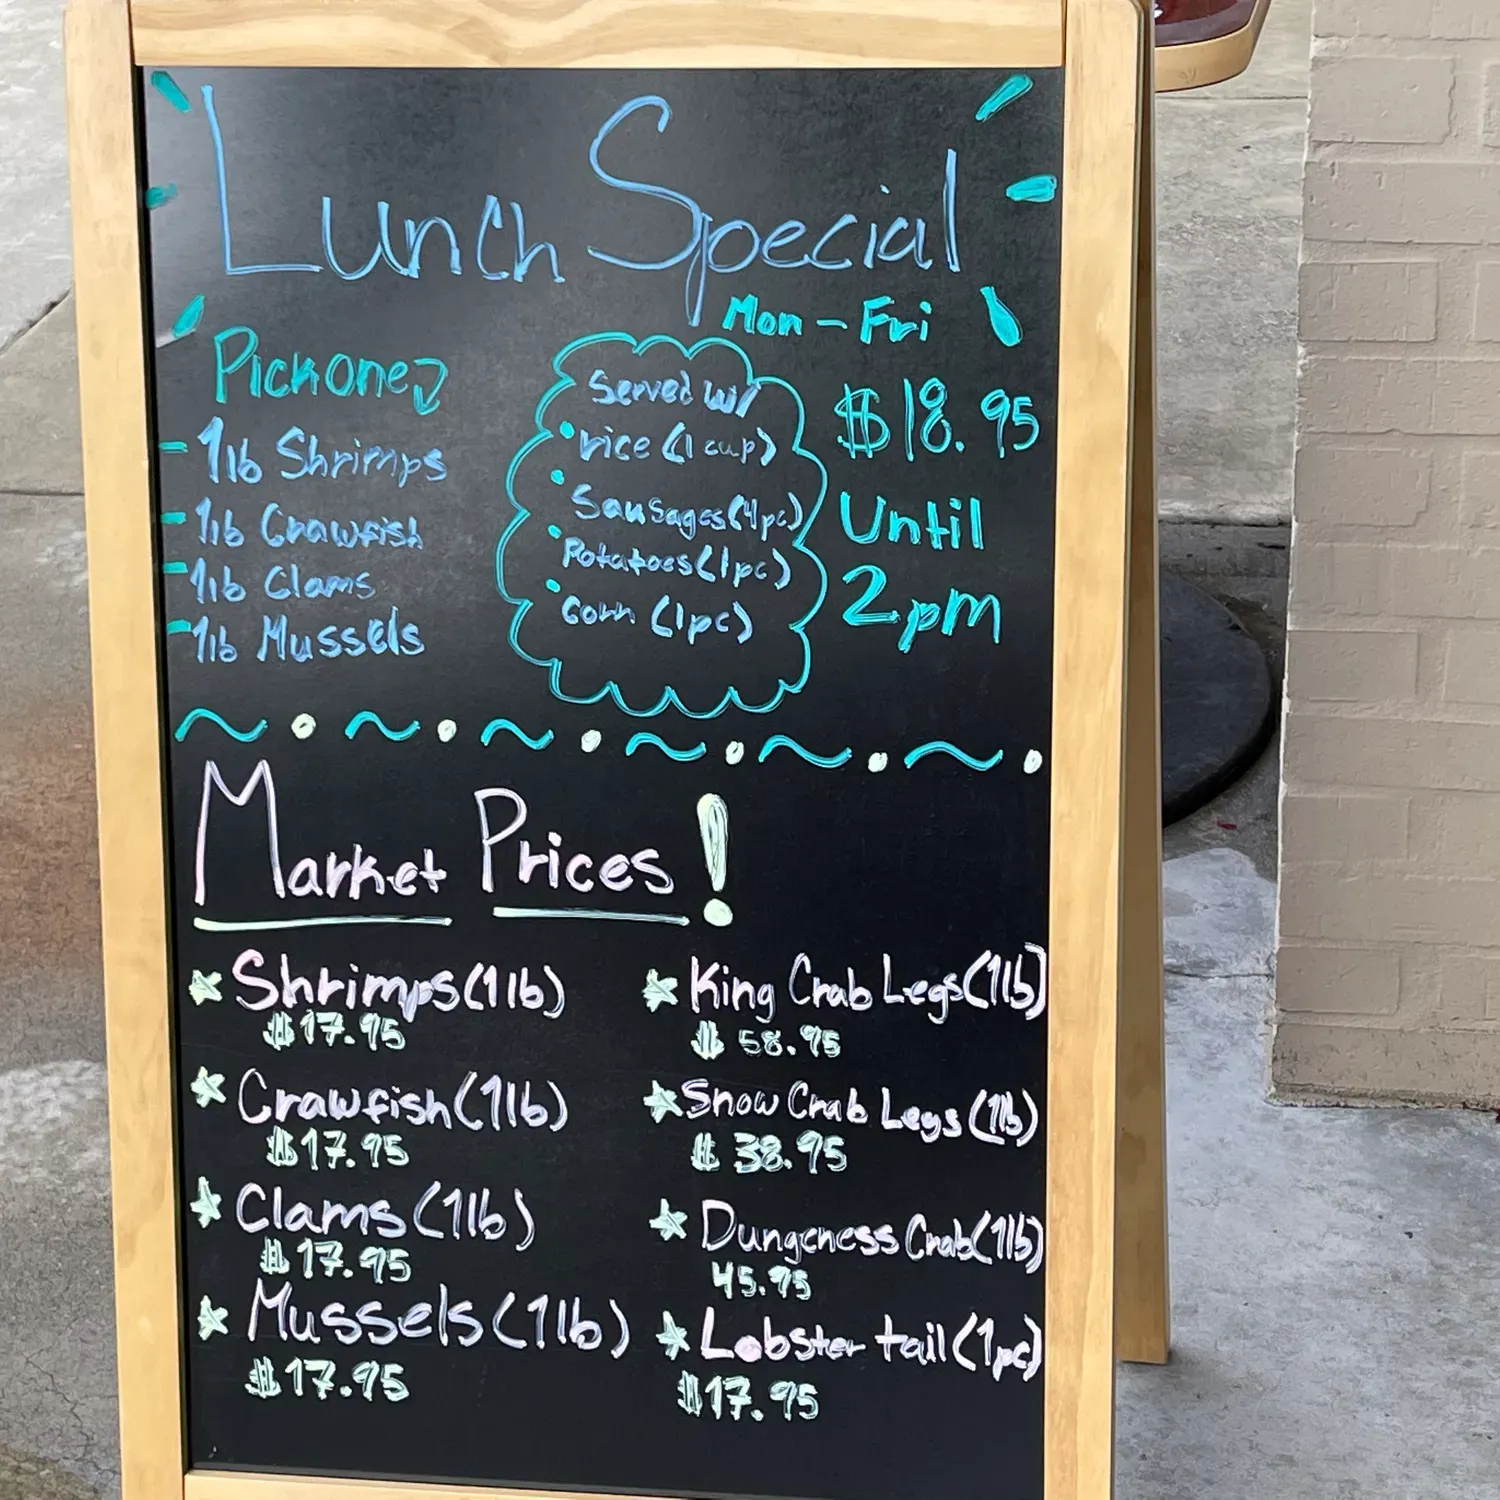 Lunch Special
Mon - Fri
Pick one
- 1lb Shrimps
- 1lb Crawfish
- 1lb Clams
- 1lb Mussels
Served w/
• rice (1 cup)
• Sausages (4pc)
• Potatoes (1pc)
• Corn (1pc)
$18.95
Until
2pm
Market Prices!
Shrimps (1lb)
$17.95
Crawfish (1lb)
$17.95
Clams (1lb)
$17.95
Mussels (1lb)
$17.95
King Crab Legs (1lb)
$58.95
Snow Crab Legs (1lb)
$38.95
Dungeness Crab (1lb)
45.95
Lobster tail (1pc)
$17.95